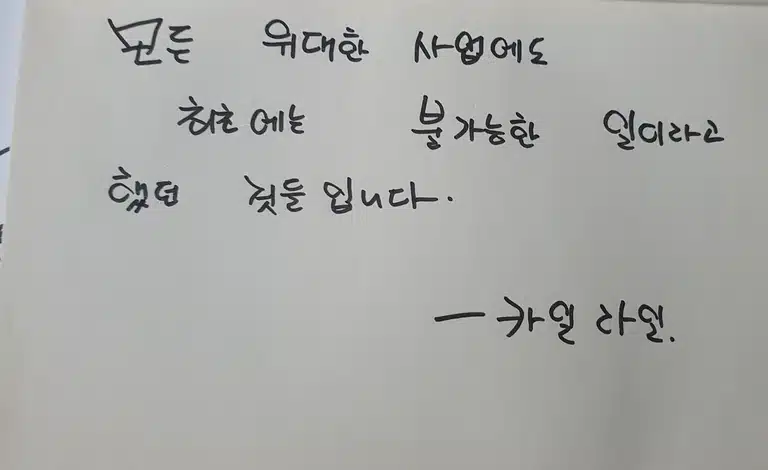 모든 위대한 사업에도
최초에는 불가능한 일이라고
했던 것들입니다.
- 카일 라일.